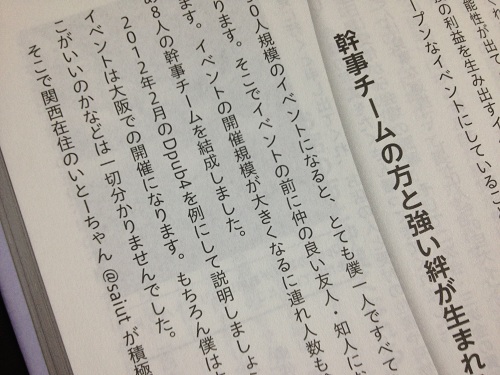 能性が出て
の利益を生み出すイ
ープンなイベントにしているこ
幹事チームの方と強い絆が生まれ
0人規模のイベントになると、とても僕一人ですべて
ります。そこでイベントの前に仲の良い友人・知人に
ます。イベントの開催規模が大きくなるに連れ人数も
8人の幹事チームを結成しました。
2012年2月のDpub4を例にして説明しましょ
イベントは大阪での開催になります。もちろん僕は
こがいいのかなどは一切分かりませんでした。
そこで関西在住のいとーちゃん @saiut が積極